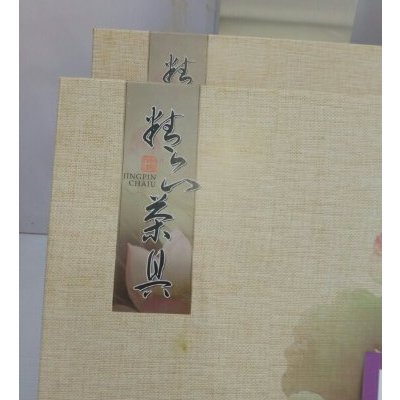 精
精品茶具
JINGPIN
CHAJU